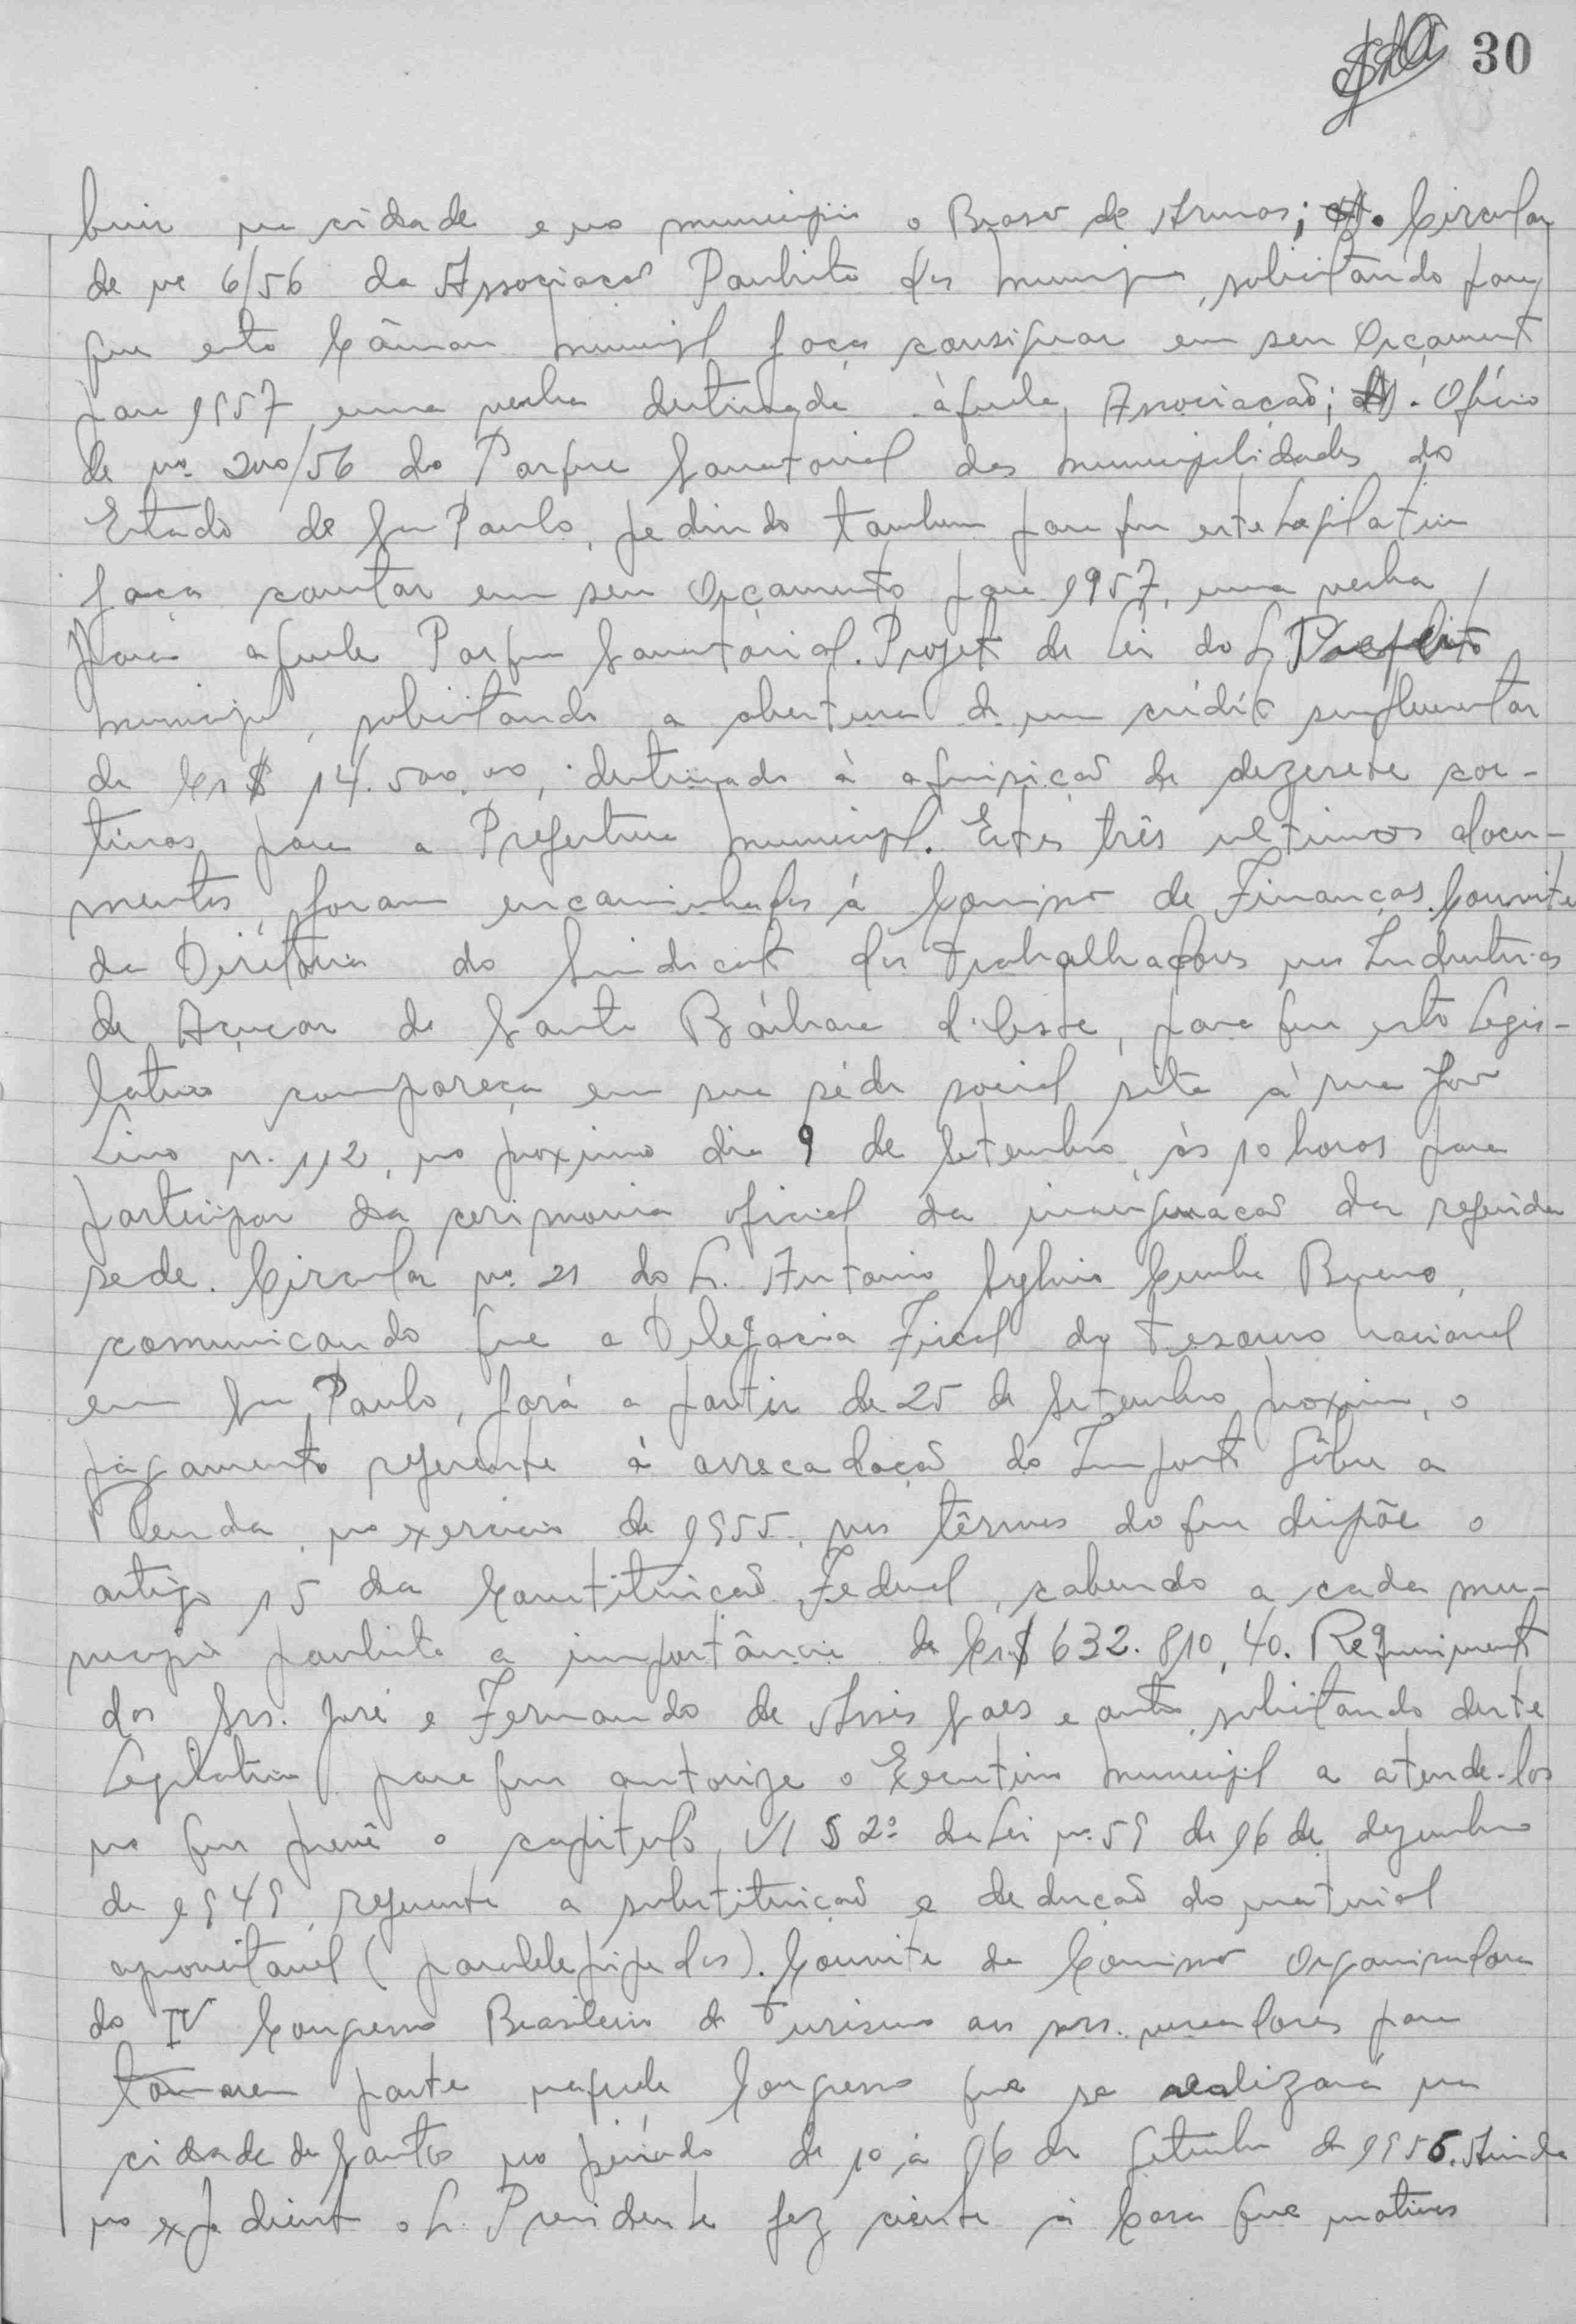 30
buir na cidade e no municipio o Brasão de Armas; Circular
de nº 6/56 da Associação Paulista dos Municipios, solicitando para
que esta Câmara Municipal faça consignar em seu Orçamento
para 1957, uma verba destinada àquela Associação; Ofício
de nº 200/56 do Parque Sanatorial das Municipalidades do
Estado de São Paulo, pedindo tambem para que este Legislativo
faça constar em seu Orçamento para 1957, uma verba
para aquele Parque Sanatorial. Projeto de Lei do Sr. Prefeito
Municipal, solicitando a abertura de um crédito suplementar
de Cr$ 14.500,00, destinado à aquisição de dezesete cor-
tinas para a Prefeitura Municipal. Estes três ultimos docu-
mentos, foram encaminhados à Comissão de Finanças. Convite
da Diretoria do Sindicato dos Trabalhadores nas Industrias
de Açucar de Santa Bárbara d'Oeste, para que este Legis-
lativo compareça em sua séde social sita à rua João
Lino n. 112, no proximo dia 9 de Setembro, às 10 horas para
participar da cerimonia oficial da inauguração da referida
sede. Circular nº 21 do Sr. Antonio Sylvio Cunha Bueno,
comunicando que a Delegacia Fiscal do Tesouro Nacional
em São Paulo, fará a partir de 25 de Setembro proximo, o
pagamento referente à arrecadação do Imposto Sôbre a
Renda, no exercicio de 1955, nos têrmos do que dispõe o
artigo 15 da Constituição Federal, cabendo a cada mu-
nicipio paulista a importância de Cr$ 632.810,40. Requerimento
dos Srs. José e Fernando de Assis Saes e outro, solicitando deste
Legislativo para que autorize o Executivo Municipal a atende-los
no que prevê o capitulo VI § 2º da Lei nº 59 de 16 de dezembro
de 1949, referente a substituição e dedução do material
aproveitavel (paralelepipedos). Convite da Comissão Organizadora
do IV Congresso Brasileiro de Turismo aos srs. vereadores para
tomarem parte naquele Congresso que se realizará na
cidade de Santos no periodo de 10 à 16 de Setembro de 1956. Ainda
no expediente o Sr. Presidente fez ciente à Casa que motivos